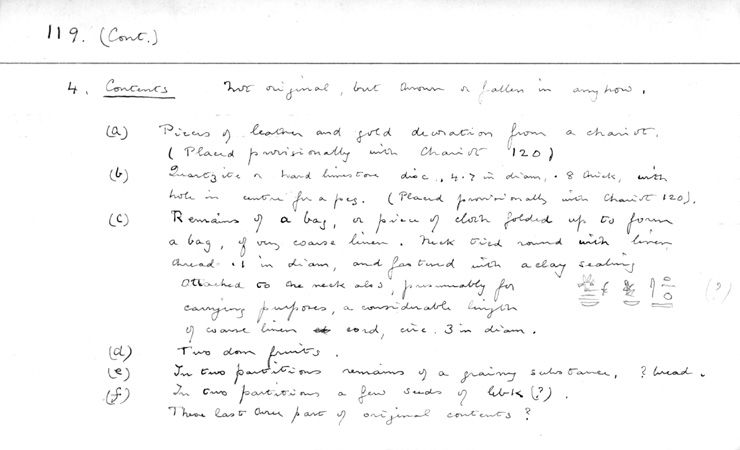 119. (Cont.)
4. Contents Not original, but thrown or fallen in anyhow.
(a) Pieces of leather and gold decoration from a chariot.
(Placed provisionally with Chariot 120)
(b) Quartzite or hard limestone disc, 4.7 in diam, .8 thick, with
hole in centre for a peg. (Placed provisionally with Chariot 120).
(c) Remains of a bag, or piece of cloth folded up to form
a bag, of very coarse linen. Neck tied round with linen
thread .1 in diam, and fastened with a clay sealing
Attached to the neck also, presumably for
carrying purposes, a considerable length
of coarse linen cord, circ. .3 in diam.
(?)
(d) Two dom fruits.
(e) In two partitions remains of a grainy substance, ? bread.
(f) In two partitions a few seeds of (?).
These last three part of original contents?